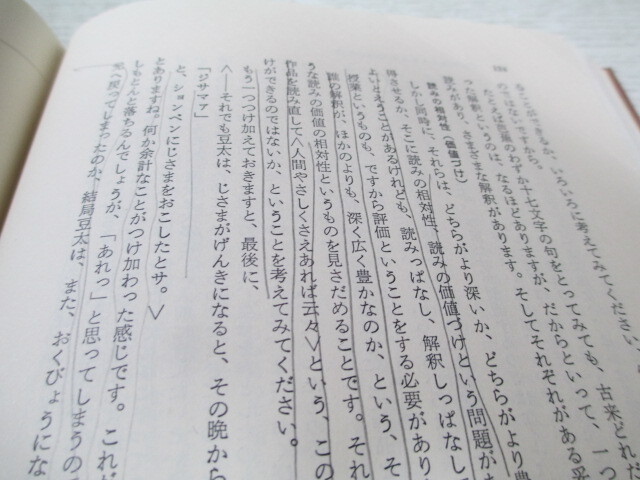 ることができるか、いろいろに考えてみてください。
のではないですから、
たとえば芭蕉のわずか十七文字の句をとってみても、古来どれだ
った解釈というのは、なるほどありますが、だからといって、一つ
読みがあり、さまざまな解釈があります。そしてそれぞれがある妥
読みの相対性(価値づけ)
しかし同時に、それらは、どちらがより深いか、どちらがより豊
得させるか、そこに読みの相対性、読みの価値づけという問題があ
よいということがあるけれども、読みっぱなし、解釈しっぱなしで
授業というものも、ですから評価ということをする必要があり
誰の解釈が、ほかのよりも、深く広く豊かなのか、という、そ
うな読みの価値の相対性というものを見さだめることです。それ
作品を読み直して〈人間やさしくさえあれば云々〉という、この
けができるのではないか、ということを考えてみてください。
もう一つつけ加えておきますと、最後に、
〈――それでも豆太は、じさまがげんきになると、その晩から
「ジサマァ」
と、ションベンにじさまをおこしたとサ。〉
とありますね。何か余計なことがつけ加わった感じです。これが
しもとんと落ちるんでしょうが、「あれっ」と思ってしまうの
元へ戻ってしまったのか、結局豆太は、また、おくびょうにな